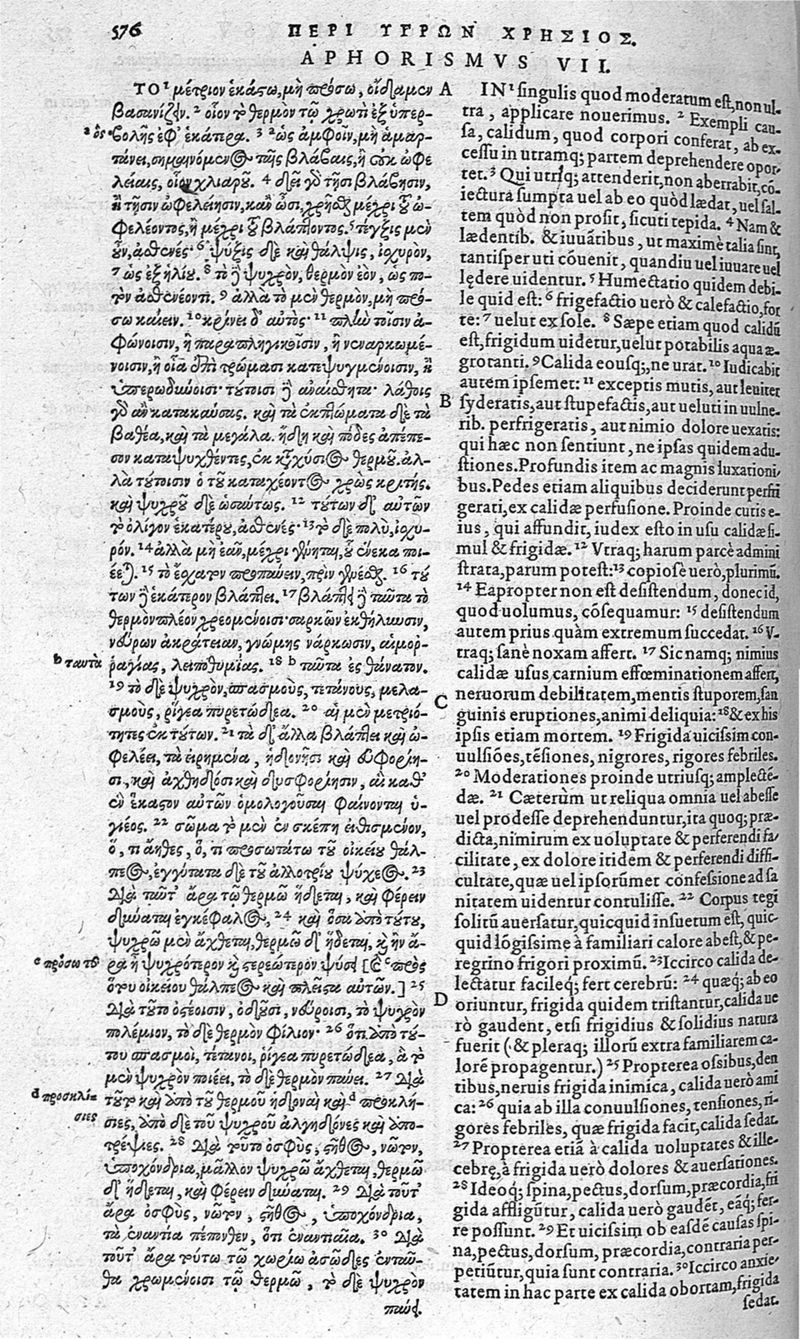 576
ΠΕΡΙ ΥΓΡΩΝ ΧΡΗΣΙΟΣ.
APHORISMVS VII.
ΤΟ¹ μέτριον ἑκάςῳ, μὴ πρόσω, οἴδαμεν
βασανίζειν. ² οἷον τὸ θερμὸν τῷ χρωτὶ ἐξ ὑπερ-
βολῆς ἐφ' ἑκάτερα. ³ ᵃὡς ἀμφοῖν, μὴ ἁμαρ-
τάνει, σημαινόμενος τῆς βλάβαις, ἢ οὐκ ὠφε
λείαις, οἷον χλιαροῦ. ⁴ δεῖ γὸ τῇσι βλάβησιν,
ἢ τῇσιν ὠφελείησιν, καὶ ὦσι, χρῆσθαι μέχρι τοῦ ὠ-
φελέοντος, ἢ μέχρι τοῦ βλάπτοντος. ⁵ τέγξις μὲν
οὖν, ἀσθενές· ⁶ ψύξις δὲ καὶ θάλψις, ἰσχυρόν,
⁷ ὡς ἐξ ἡλίου. ⁸ τὸ δὲ ψυχρὸν, θερμὸν ἐὸν, ὡς πο-
τὸν ἀσθενέοντι. ⁹ ἀλλὰ τὸ μὲν θερμὸν, μὴ πρό-
σω καίειν. ¹⁰ κρίνει δ' αὐτός· ¹¹ πλὴν τοῖσιν ἀ-
φώνοισιν, ἢ παραπληγικοῖσιν, ἢ νεναρκωμέ-
νοισιν, ἢ οἷα ἐπὶ τρώμασι κατεψυγμένοισιν, ἢ
ὑπερωδύνοισι· τούτοισι δὲ ἀναίσθητα· λάθοις
γὸ ἂν κατακαύσας. καὶ τὰ ἐκπτώματα δὲ τὰ
βαθέα, καὶ τὰ μεγάλα. ἤδη καὶ πόδες ἀπέπε-
σον καταψυχθέντες, ἐκ καταχύσιος θερμοῦ. ἀλ-
λὰ τούτοισιν ὁ τοῦ καταχέοντος χρὼς κριτής.
καὶ ψυχροῦ δὲ ὡσαύτως. ¹² τούτων δὲ αὐτῶν
τὸ ὀλίγον ἑκατέρου, ἀσθενές· ¹³ τὸ δὲ πολὺ, ἰσχυ-
ρόν. ¹⁴ ἀλλὰ μὴ ἐᾶν, μέχρι γένηται, οὗ ἕνεκα ποι-
έεται. ¹⁵ τὸ ἔσχατον προπαύειν, πρὶν γενέσθαι. ¹⁶ τού
των δὲ ἑκάτερον βλάπτει. ¹⁷ βλάπτει δὲ ταῦτα τὸ
θερμὸν πλέον χρεομένοισι· σαρκῶν ἐκθήλυνσιν,
νεύρων ἀκράτειαν, γνώμης νάρκωσιν, αἱμοῤ-
ραγίας, λειποθυμίας. ¹⁸ ᵇ ταῦτα ἐς θάνατον.
¹⁹ τὸ δὲ ψυχρὸν, σπασμοὺς, τετάνους, μελα-
σμοὺς, ῥίγεα πυρετώδεα. ²⁰ αἱ μὲν μετριό-
τητες ἐκ τούτων. ²¹ τὰ δὲ ἄλλα βλάπτει καὶ ὠ-
φελέει, τὰ εἰρημένα, ἡδονῇσι καὶ εὐφορίη-
σι, καὶ ἀχθηδόσι καὶ δυσφορίησιν, αἳ καθ'
ἓν ἕκαστον αὐτῶν ὁμολογοῦσαι φαίνονται ὑ-
γιέος. ²² σῶμα τὸ μὲν ἐν σκέπῃ εἰθισμένον,
ὅ, τι ἄηθες, ὅ, τι προσωτάτω τοῦ οἰκείου θάλ-
πεος, ἐγγύτατα δὲ τοῦ ἀλλοτρίου ψύχεος. ²³
Διὰ ταῦτ' ἄρα τῷ θερμῷ ἥδεται, καὶ φέρειν
δύναται ἐγκέφαλος, ²⁴ καὶ ὅσα ἀπὸ τούτου,
ψυχρῷ μὲν ἄχθεται, θερμῷ δὲ ἥδεται, κ ἢν ἄ-
ρα ᾖ ψυχρότερον κ στερεώτερον φύσει [ᶜ πρὸς
ὅτου οἰκείου θάλπεος καὶ πλεῖστα αὐτῶν.] ²⁵
Διὰ τοῦτο ὀστέοισιν, ὀδοῦσι, νεύροισι, τὸ ψυχρὸν
πολέμιον, τὸ δὲ θερμὸν φίλιον· ²⁶ ὅτι ἀπὸ τού-
του σπασμοὶ, τέτανοι, ῥίγεα πυρετώδεα, ἃ τὸ
μὲν ψυχρὸν ποιέει, τὸ δὲ θερμὸν παύει. ²⁷ Διὰ
τοῦτο καὶ ἀπὸ τοῦ θερμοῦ ἡδοναὶ καὶ ᵈ προκλή-
σιες, ἀπὸ δὲ τοῦ ψυχροῦ ἀλγηδόνες καὶ ἀπο-
τρέψιες. ²⁸ Διὰ τοῦτο ὀσφὺς, στῆθος, νῶτον,
ὑποχόνδρια, μᾶλλον ψυχρῷ ἄχθεται, θερμῷ
δὲ ἥδεται, καὶ φέρειν δύναται. ²⁹ Διὰ τοῦτ'
ἄρα ὀσφὺς, νῶτον, στῆθος, ὑποχόνδρια,
τὰ ἐναντία πέπονθεν, ὅτι ἐναντιαῖα. ³⁰ Διὰ
τοῦτ' ἄρα τούτῳ τῷ χωρίῳ ἀσώδεες ἐνταῦ-
θα χρωμένοισι τῷ θερμῷ, τὸ δὲ ψυχρὸν
παύει.
ᵃ ὁς
ᵇ ταυτὰ
ᶜ πρόσω τοῦ
ᵈ προσκλί
σιες
A
B
C
D
IN¹ singulis quod moderatum est, non ul-
tra, applicare nouerimus. ² Exempli cau-
sa, calidum, quod corpori conferat, ab ex-
cessu in utramq; partem deprehendere opor
tet. ³ Qui utriq; attenderit, non aberrabit, cō-
iectura sumpta uel ab eo quòd lædat, uel sal-
tem quòd non prosit, sicuti tepida. ⁴ Nam &
lædentib. & iuuātibus, ut maximè talia sint,
tantisper uti cōuenit, quandiu uel iuuare uel
lędere uidentur. ⁵ Humectatio quidem debi-
le quid est: ⁶ frigefactio uerò & calefactio, for
te: ⁷ uelut ex sole. ⁸ Sæpe etiam quod calidū
est, frigidum uidetur, uelut potabilis aqua æ-
grotanti. ⁹ Calida eousq;, ne urat. ¹⁰ Iudicabit
autem ipsemet: ¹¹ exceptis mutis, aut leuiter
syderatis, aut stupefactis, aut ueluti in uulne-
rib. perfrigeratis, aut nimio dolore uexatis:
qui hæc non sentiunt, ne ipsas quidem adu-
stiones. Profundis item ac magnis luxationi
bus. Pedes etiam aliquibus deciderunt perfri
gerati, ex calidæ perfusione. Proinde cutis e-
ius, qui affundit, iudex esto in usu calidæ si-
mul & frigidæ. ¹² Vtraq; harum parcè admini
strata, parum potest: ¹³ copiosè uerò, plurimū.
¹⁴ Eapropter non est desistendum, donec id,
quod uolumus, cōsequamur: ¹⁵ desistendum
autem prius quàm extremum succedat. ¹⁶ V-
traq; sanè noxam affert. ¹⁷ Sic namq; nimius
calidæ usus carnium effœminationem affert,
neruorum debilitatem, mentis stuporem, san
guinis eruptiones, animi deliquia: ¹⁸ & ex his
ipsis etiam mortem. ¹⁹ Frigida uicissim con-
uulsiōes, tēsiones, nigrores, rigores febriles.
²⁰ Moderationes proinde utriusq; amplectē-
dæ. ²¹ Cæterùm ut reliqua omnia uel abesse
uel prodesse deprehenduntur, ita quoq; præ-
dicta, nimirum ex uoluptate & perferendi fa
cilitate, ex dolore itidem & perferendi diffi-
cultate, quæ uel ipsorūmet confessione ad sa
nitatem uidentur contulisse. ²² Corpus tegi
solitū auersatur, quicquid insuetum est, quic-
quid lōgissimè à familiari calore abest, & pe-
regrino frigori proximū. ²³ Iccirco calida de-
lectatur facileq; fert cerebrū: ²⁴ quæq; ab eo
oriuntur, frigida quidem tristantur, calida ue
rò gaudent, etsi frigidius & solidius natura
fuerit (· & pleraq; illorū extra familiarem ca-
lorē propagentur.) ²⁵ Propterea ossibus, den
tibus, neruis frigida inimica, calida uerò ami
ca: ²⁶ quia ab illa conuulsiones, tensiones, ri-
gores febriles, quæ frigida facit, calida sedat.
²⁷ Propterea etiā à calida uoluptates & ille-
cebrę, à frigida uerò dolores & auersationes.
²⁸ Ideoq; spina, pectus, dorsum, præcordia, fri
gida affligūtur, calida uerò gaudēt, eāq; fer-
re possunt. ²⁹ Et uicissim ob easdē causas spi-
na, pectus, dorsum, præcordia, contraria per-
petiūtur, quia sunt contraria. ³⁰ Iccirco anxie-
tatem in hac parte ex calida obortam, frigida
sedat.